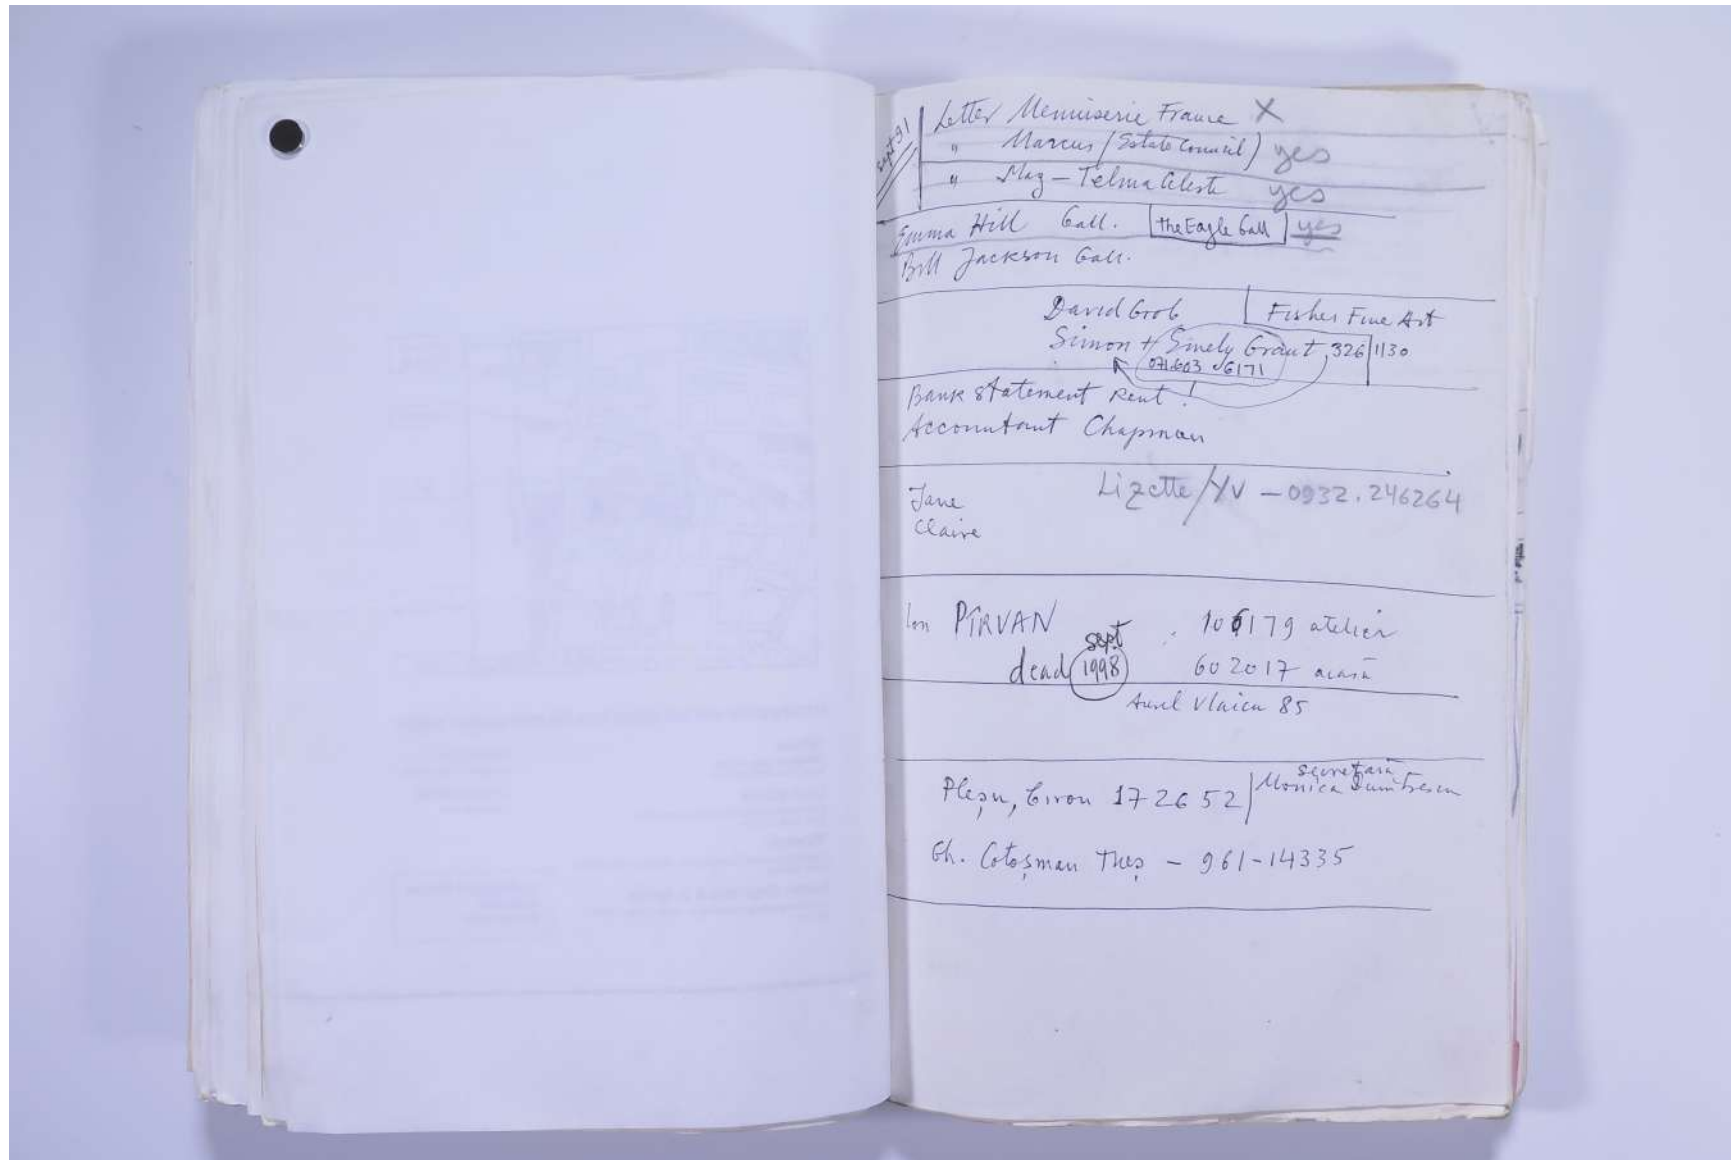 sept 91
Letter Menuiserie France X
" Marcus (Estate Council) yes
" Mag – Telma Celeste yes
Emma Hill Gall. the Eagle Gall yes
Bill Jackson Gall.
David Grob Fisher Fine Art
Simon + Grant 326 1130
071.603 6171
Bank statement Rent!
Accountant Chapman
Jane Lizette/YV – 0932.246264
Claire
Ion PÎRVAN 106179 atelier
sept
dead 1998 602017 acasă
Aurel Vlaicu 85
secretară
Pleșu, 17 26 52 Monica Dumitrescu
Gh. Cotoșman – 961-14335